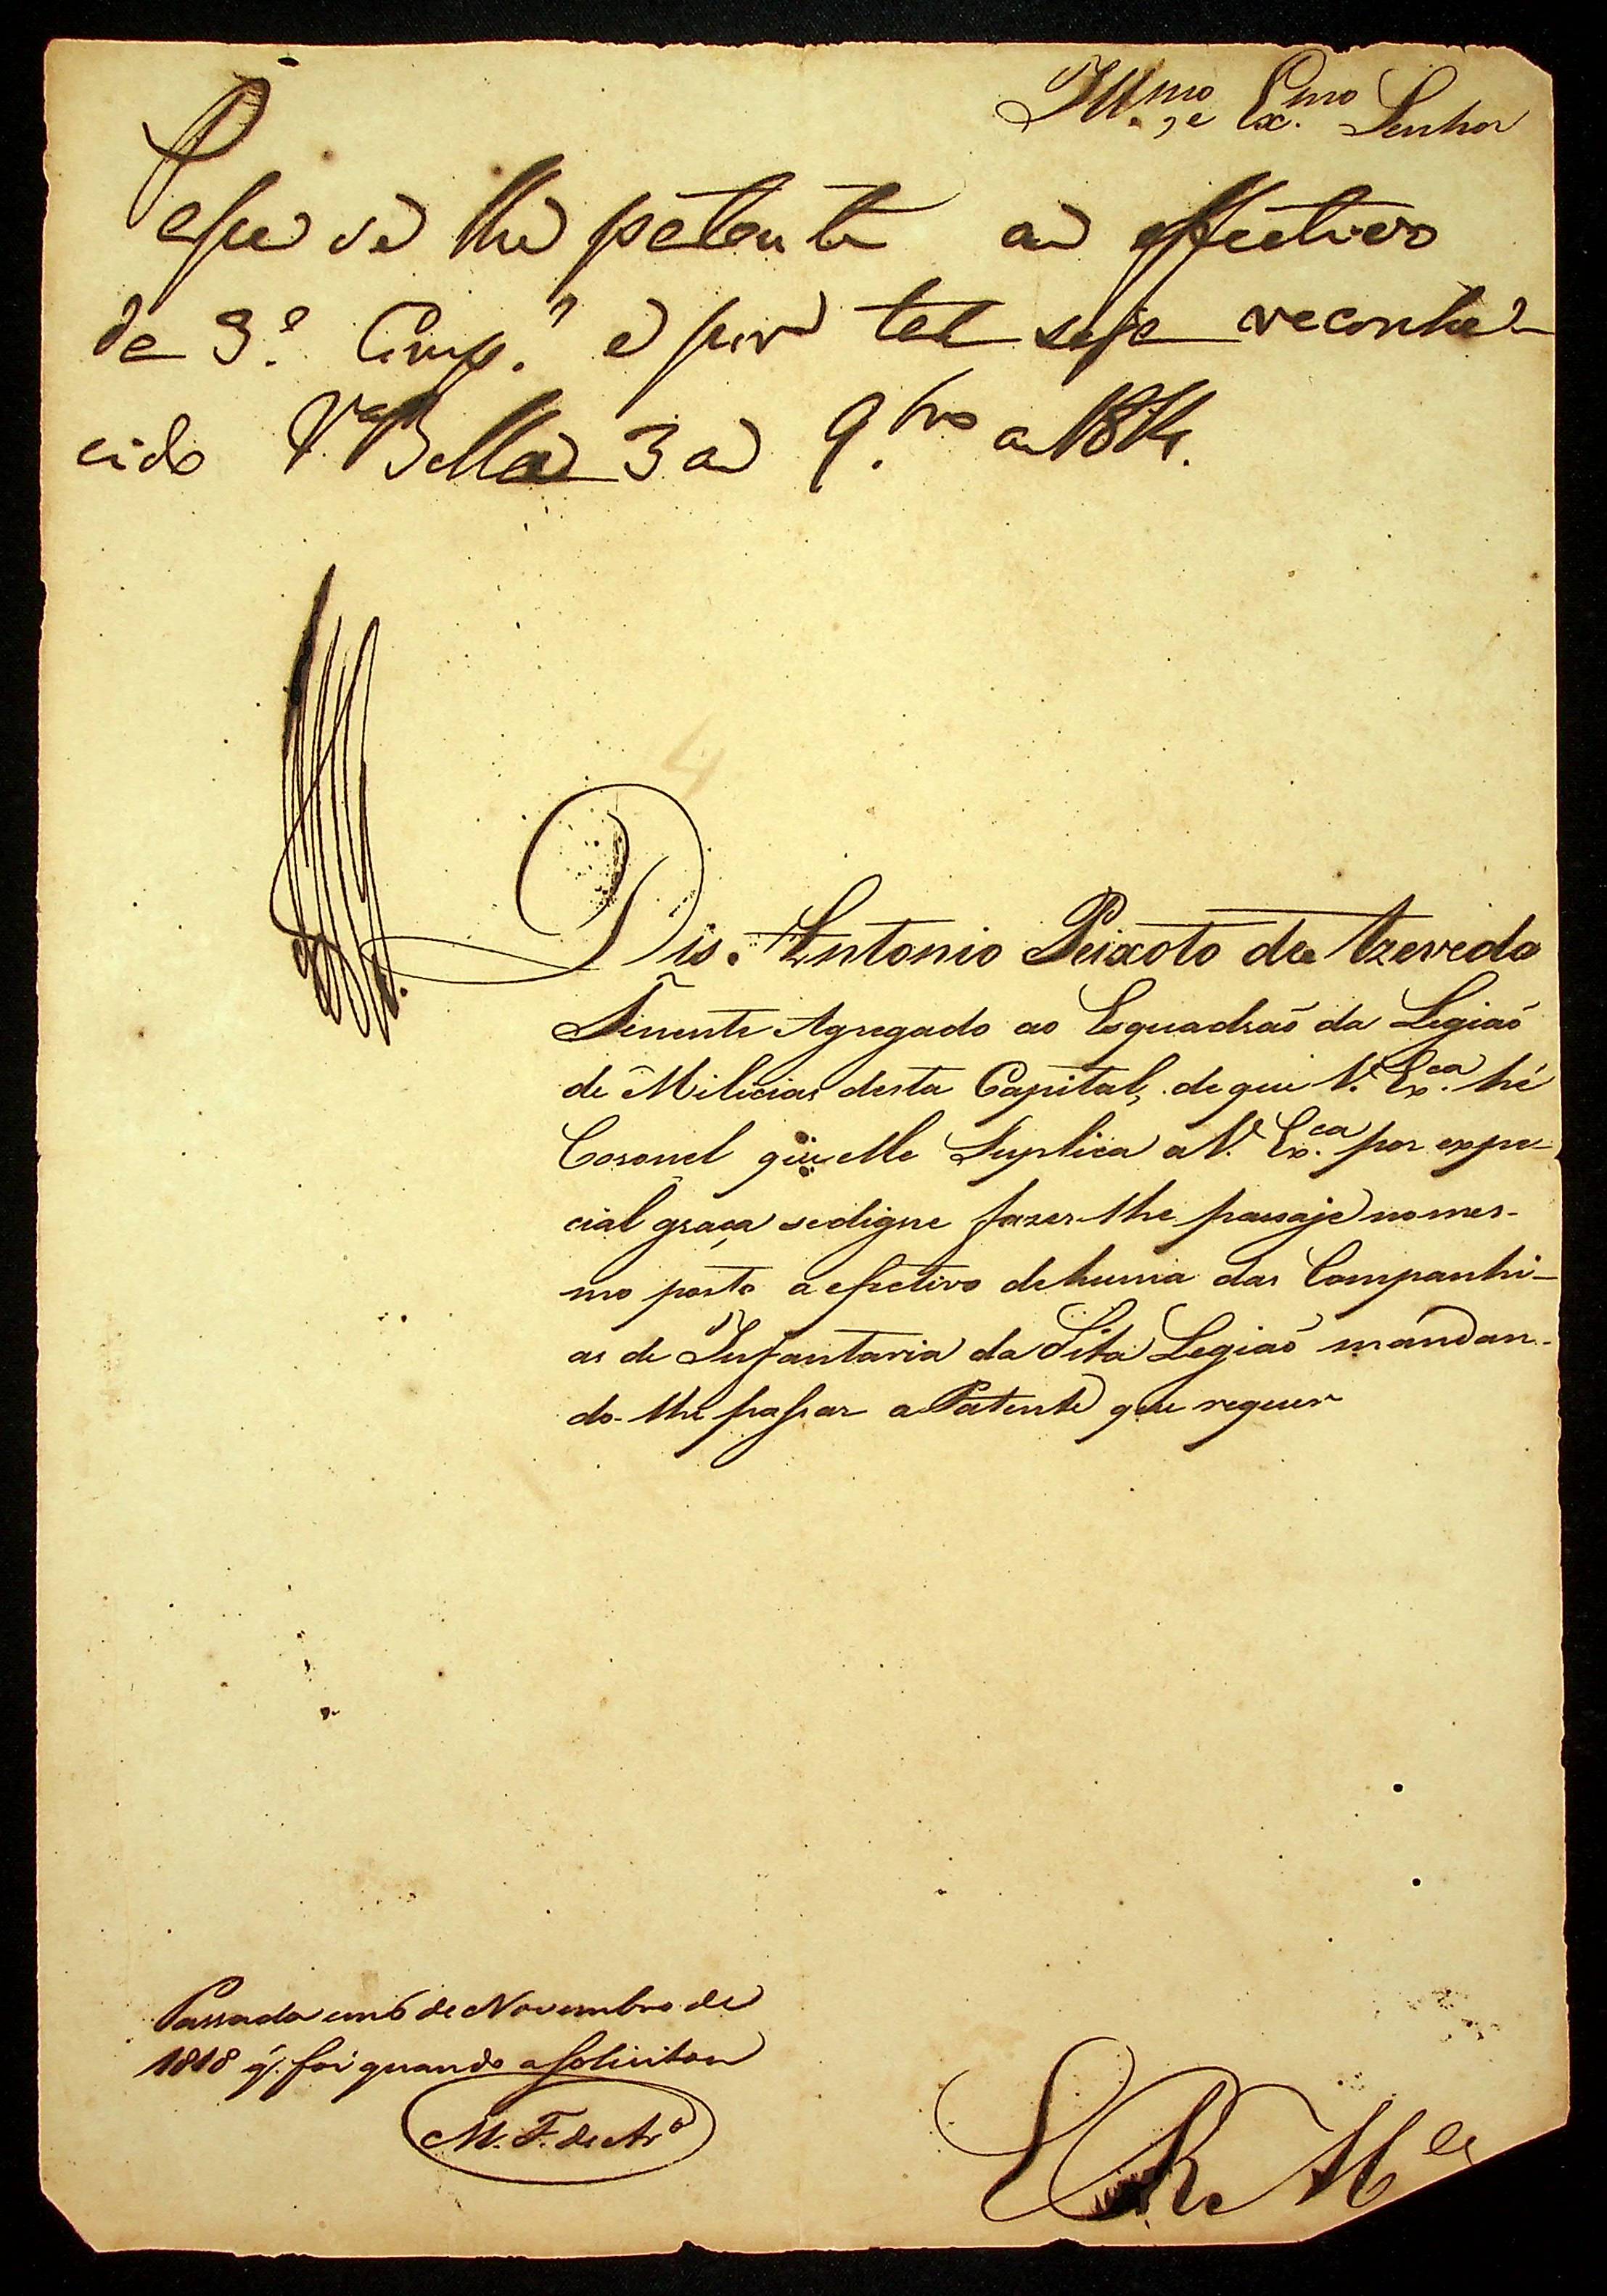 Ill.mo, e Ex.mo Senhor
Passe se lhe patente de effectivo
da 3.ª Comp.ª e por tal seja reconhe-
cido V.ª Bella 3 de 9.bro de 1814.
Diz Antonio Peixoto de Azevedo
Tenente Agregado ao Esquadraõ da Legiaõ
de Milicias desta Capital, de que V. Ex.ca hé
Coronel que elle Suplica a V. Ex.ca por expe-
cial graça sedigne fazer-lhe passaje no mes-
mo posto a efectivo de huma das Companhi-
as de Infantaria da Dita Legiaõ mandan-
do-lhe passar a Patente que requer
Passada em 6 de Novembro de
1818 q. foi quando a solicitou
M. F. de Ar.º
E R M.ce